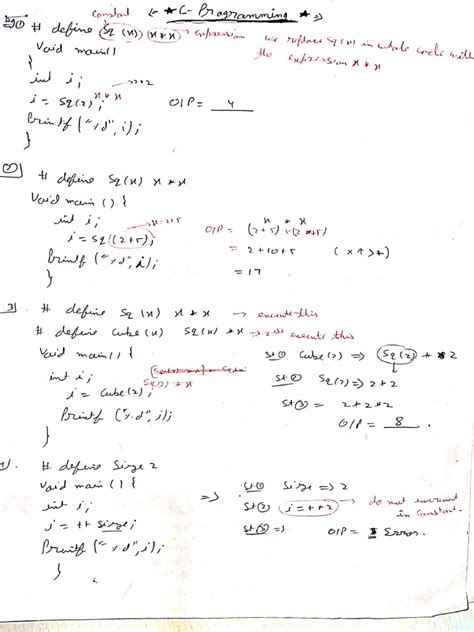 constant
* C-Programming *
① # define Sq(x) (x*x) → expression we replace Sq(x) in whole code with
the expression x*x
Void main()
{
int i; → 2*2
i = Sq(2); x*x O/P = 4
Printf("%d", i);
}
② # define Sq(x) x*x
Void main () {
int i; → x=2+5 x * x
i = Sq(2+5); O/P = (2+5)*(2+5)
Printf("%d", i); = 2+10+5 (* > +)
} = 17
3] # define Sq(x) x*x → execute this
# define Cube(x) Sq(x)*x → 2nd execute this
Void main() { St① Cube(2) => Sq(2) * 2
int i; Sq(2)*x St② Sq(2) => 2*2
i = Cube(2); St③ = 2*2*2
Printf("%d", i); O/P = 8.
}
# define Size 2
Void main () { => St① Size => 2
int i; St② i = ++2 → do not increment
i = ++ Size; in Constant.
Printf("%d", i); St③ => O/P = Error.
}